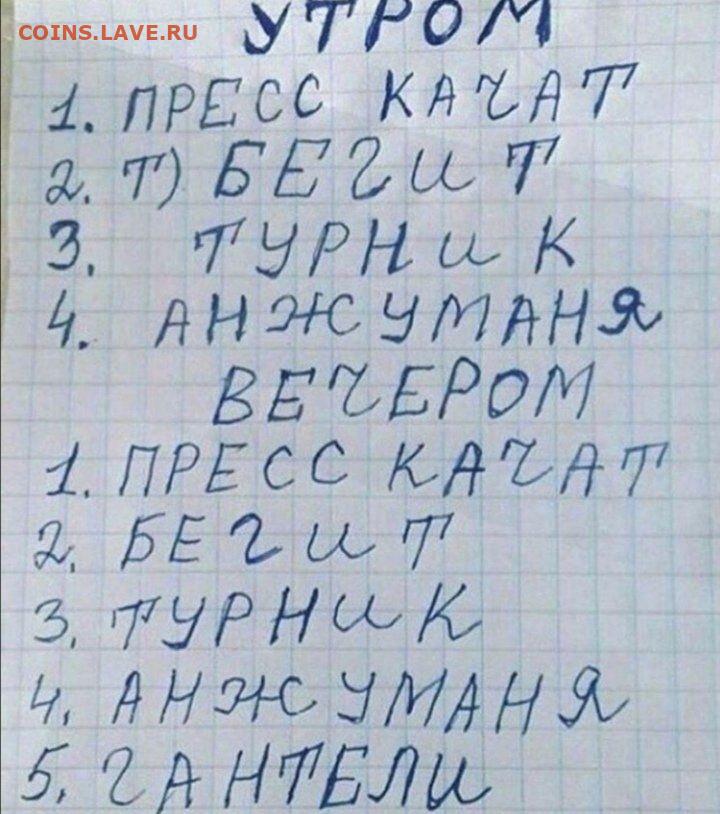 COINS.LAVE.RU
УТРОМ
1. ПРЕСС КАЧАТ
2. Т) БЕГИТ
3. ТУРНИК
4. АНЖУМАНЯ
ВЕЧЕРОМ
1. ПРЕСС КАЧАТ
2. БЕГИТ
3. ТУРНИК
4. АНЖУМАНЯ
5. ГАНТЕЛИ